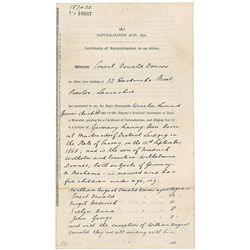 157422
No 18037
(A)
NATURALISATION ACT, 1870.
Certificate of Naturalisation to an Alien.
Whereas Ernest Oswald Donner
an Alien, now residing at 12 Hardwicke Street,
Preston, Lancashire
has presented to me, the Right Honourable Winston Leonard
Spencer Churchill one of His Majesty's Principal Secretaries of State,
a Memorial, praying for a Certificate of Naturalisation, and alleging that he
is a Subject of Germany, having been born
at District Leipzig in
the State of Saxony on the September
1868; and is the son of Friedrich
Wilhelm and Ernestine Wilhelmine
Donner, both subjects of Germany
A Mechanic is married and has
five children under age, viz
William August Oswald Donner aged
Ernest Oswald 12
Virgil Roderick 11
Evelyn Anna 8
John George 2
and with the exception of William August
Oswald they are all residing with him